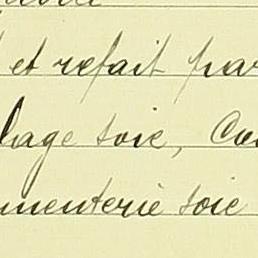 et refait par
lhage soie, Co
menterie soie